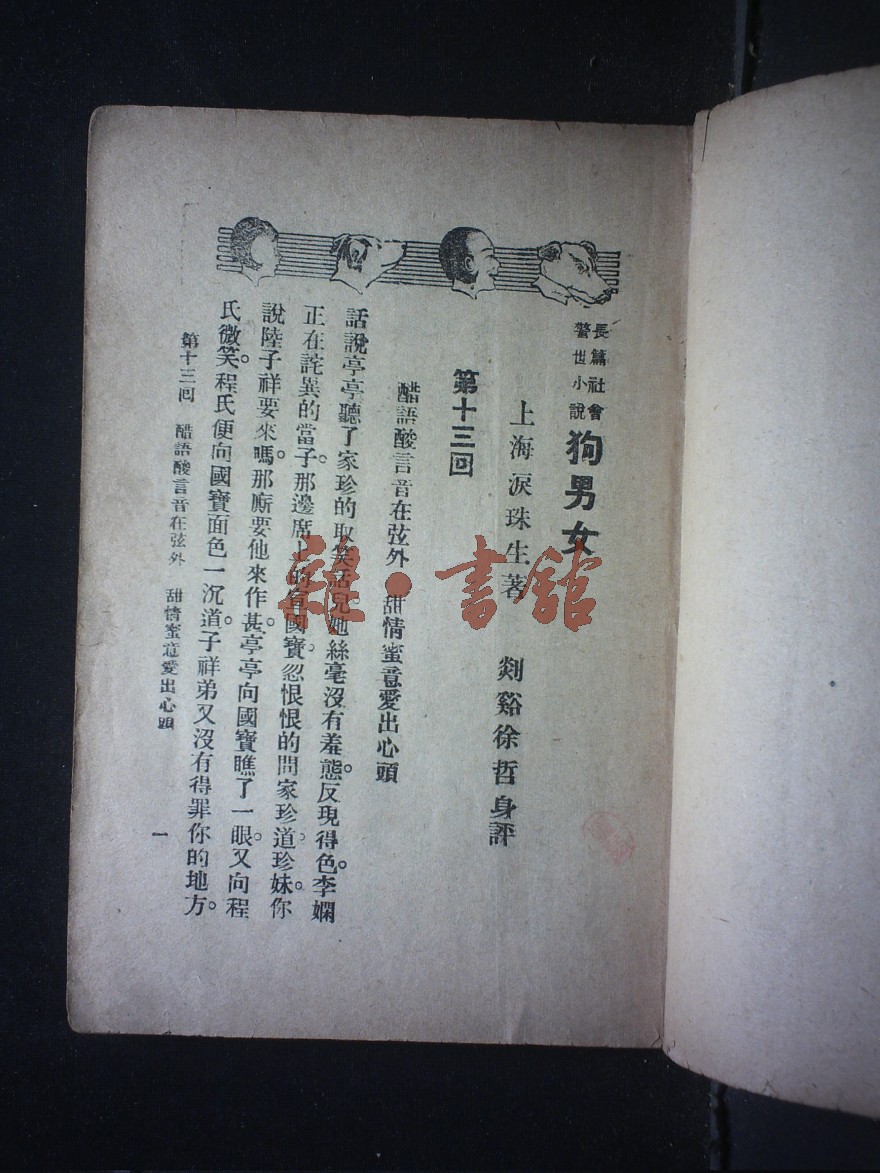 長篇社會
警世小說
狗男女
上海淚珠生著
剡谿徐哲身評
第十三回
醋語酸言音在弦外 甜情蜜意愛出心頭
話說亭亭聽了家珍的取笑話兒她絲毫沒有羞態。反現得色。李嫻
正在詫異的當子。那邊席上的 國寶。忽恨恨的問家珍道。珍妹。你
說陸子祥要來嗎。那廝要他來作甚。亭亭向國寶瞧了一眼。又向程
氏微笑。程氏便向國寶面色一沉道。子祥弟又沒有得罪你的地方。
第十三回 醋語酸言音在弦外 甜情蜜意愛出心頭
一
雜·書館